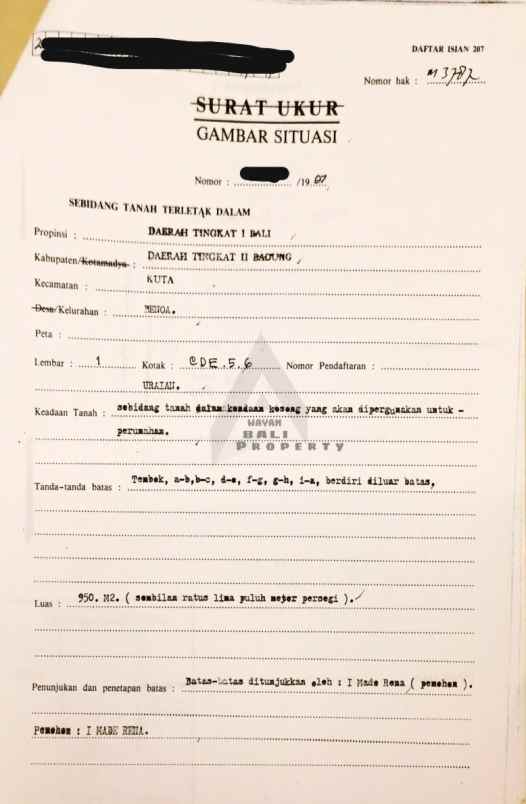 DAFTAR ISIAN 207
Nomor hak : M 3782
SURAT UKUR
GAMBAR SITUASI
Nomor : /19
SEBIDANG TANAH TERLETAK DALAM
Propinsi : DAERAH TINGKAT I BALI
Kabupaten/Kotamadya : DAERAH TINGKAT II BADUNG
Kecamatan : KUTA
Desa/Kelurahan : BENOA.
Peta :
Lembar : 1 Kotak : CDE.5.6 Nomor Pendaftaran :
URAIAN.
Keadaan Tanah : sebidang tanah dalam keadaan kosong yang akan dipergunakan untuk -
perumahan.
WAYAN
BALI
PROPERTY
Tanda-tanda batas : Tembok, a-b,b-c, d-e, f-g, g-h, i-a, berdiri diluar batas,
Luas : 950. M2. ( sembilan ratus lima puluh meter persegi ).
Penunjukan dan penetapan batas : Batas-batas ditunjukkan oleh : I Made Rena ( pemohon ).
Pemohon : I MADE RENA.